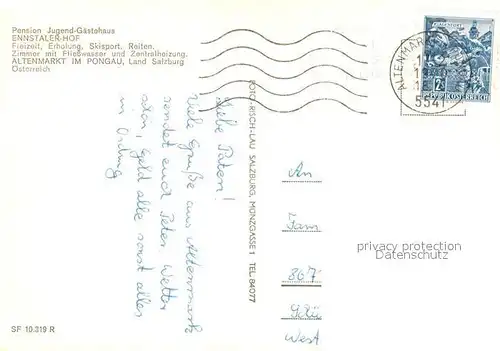 Pension Jugend-Gästehaus
ENNSTALER-HOF
Freizeit, Erholung, Skisport, Reiten.
Zimmer mit Fließwasser und Zentralheizung.
ALTENMARKT IM PONGAU, Land Salzburg
Österreich
ALTENMAR
5541
Liebe Paten!
Viele Grüße aus Altenmarkt
sendet euch Peter. Wetter
schön, Geld alle sonst alles
in Ordnung
FOTO RISCH-LAU SALZBURG, MÜNZGASSE 1 TEL. 84077
An
Fam
807
West
privacy protection
Datenschutz
SF 10.319 R